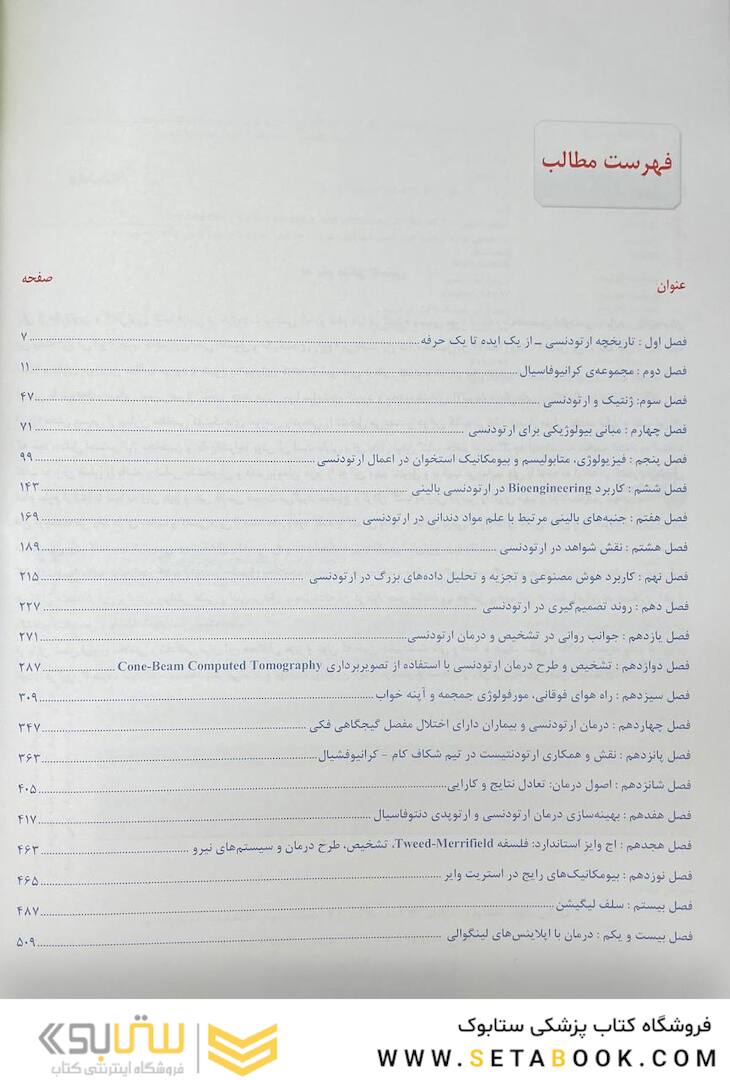 فهرست مطالب
عنوان صفحه
فصل اول : تاریخچه ارتودنسی – از یک ایده تا یک حرفه ۷
فصل دوم : مجموعه‌ی کرانیوفاسیال ۱۱
فصل سوم: ژنتیک و ارتودنسی ۴۷
فصل چهارم : مبانی بیولوژیکی برای ارتودنسی ۷۱
فصل پنجم : فیزیولوژی، متابولیسم و بیومکانیک استخوان در اعمال ارتودنسی ۹۹
فصل ششم : کاربرد Bioengineering در ارتودنسی بالینی ۱۴۳
فصل هفتم : جنبه‌های بالینی مرتبط با علم مواد دندانی در ارتودنسی ۱۶۹
فصل هشتم : نقش شواهد در ارتودنسی ۱۸۹
فصل نهم : کاربرد هوش مصنوعی و تجزیه و تحلیل داده‌های بزرگ در ارتودنسی ۲۱۵
فصل دهم : روند تصمیم‌گیری در ارتودنسی ۲۲۷
فصل یازدهم : جوانب روانی در تشخیص و درمان ارتودنسی ۲۷۱
فصل دوازدهم : تشخیص و طرح درمان ارتودنسی با استفاده از تصویربرداری Cone-Beam Computed Tomography ۲۸۷
فصل سیزدهم : راه هوای فوقانی، مورفولوژی جمجمه و آپنه خواب ۳۰۹
فصل چهاردهم : درمان ارتودنسی و بیماران دارای اختلال مفصل گیجگاهی فکی ۳۴۷
فصل پانزدهم : نقش و همکاری ارتودنتیست در تیم شکاف کام - کرانیوفشیال ۳۶۳
فصل شانزدهم : اصول درمان: تعادل نتایج و کارایی ۴۰۵
فصل هفدهم : بهینه‌سازی درمان ارتودنسی و ارتوپدی دنتوفاسیال ۴۱۷
فصل هجدهم : اج وایز استاندارد: فلسفه Tweed-Merrifield، تشخیص، طرح درمان و سیستم‌های نیرو ۴۶۳
فصل نوزدهم : بیومکانیک‌های رایج در استریت وایر ۴۶۵
فصل بیستم : سلف لیگیشن ۴۸۷
فصل بیست و یکم : درمان با اپلاینس‌های لینگوالی ۵۰۹
فروشگاه کتاب پزشکی ستابوک
WWW.SETABOOK.COM
ستابوک
فروشگاه اینترنتی کتاب